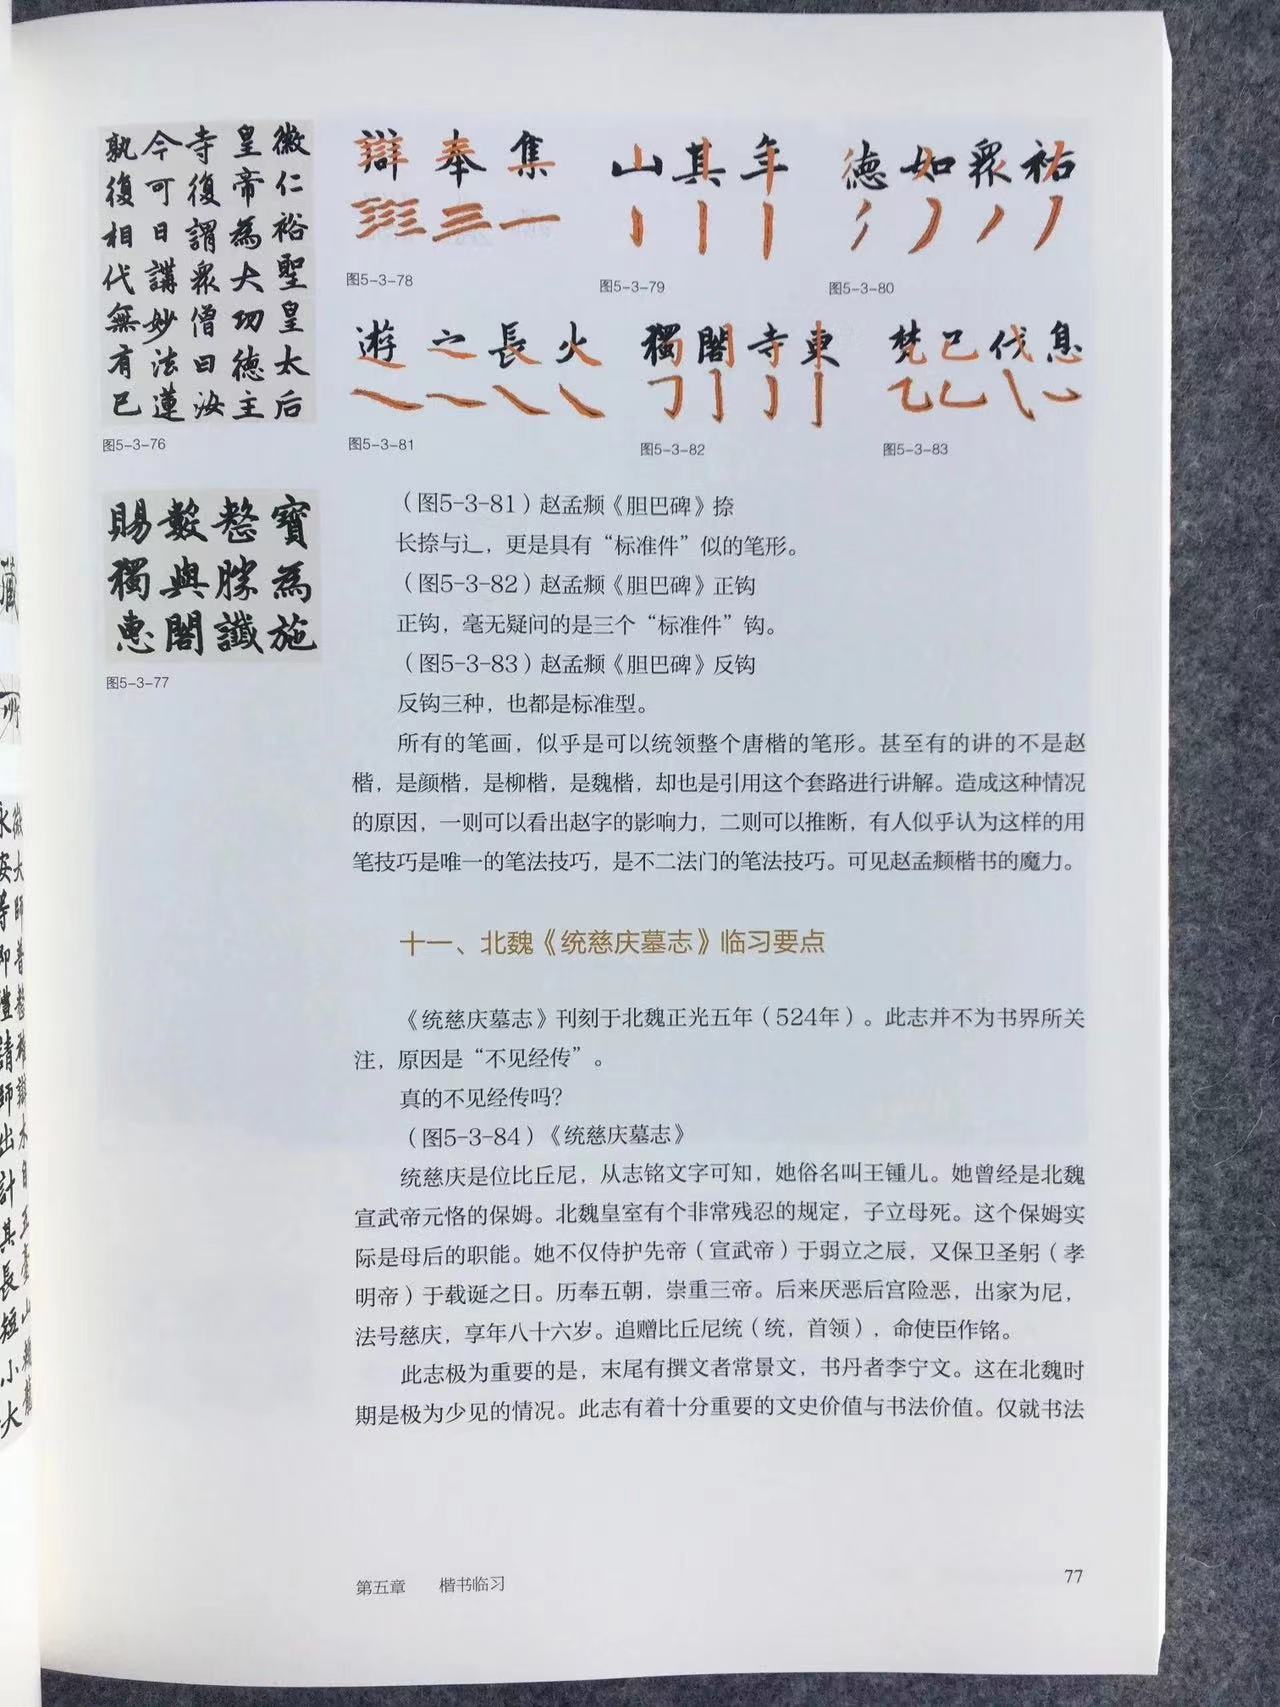 徽仁裕聖皇太后
皇帝為大功德主
寺復謂眾僧曰汝
今可日講妙法蓮
孰復相代無有已
图5-3-76
辯 奉 集
图5-3-78
山 其 年
图5-3-79
德 如 眾 祐
图5-3-80
遊 之 長 火
图5-3-81
獨 閣 寺 東
图5-3-82
梵 已 伐 息
图5-3-83
寶為施
整勝讖
數與閣
賜獨惠
图5-3-77
（图5-3-81）赵孟頫《胆巴碑》捺
长捺与辶，更是具有“标准件”似的笔形。
（图5-3-82）赵孟頫《胆巴碑》正钩
正钩，毫无疑问的是三个“标准件”钩。
（图5-3-83）赵孟頫《胆巴碑》反钩
反钩三种，也都是标准型。
所有的笔画，似乎是可以统领整个唐楷的笔形。甚至有的讲的不是赵
楷，是颜楷，是柳楷，是魏楷，却也是引用这个套路进行讲解。造成这种情况
的原因，一则可以看出赵字的影响力，二则可以推断，有人似乎认为这样的用
笔技巧是唯一的笔法技巧，是不二法门的笔法技巧。可见赵孟頫楷书的魔力。
十一、北魏《统慈庆墓志》临习要点
《统慈庆墓志》刊刻于北魏正光五年（524年）。此志并不为书界所关
注，原因是“不见经传”。
真的不见经传吗？
（图5-3-84）《统慈庆墓志》
统慈庆是位比丘尼，从志铭文字可知，她俗名叫王锺儿。她曾经是北魏
宣武帝元恪的保姆。北魏皇室有个非常残忍的规定，子立母死。这个保姆实
际是母后的职能。她不仅侍护先帝（宣武帝）于弱立之辰，又保卫圣躬（孝
明帝）于载诞之日。历奉五朝，崇重三帝。后来厌恶后宫险恶，出家为尼，
法号慈庆，享年八十六岁。追赠比丘尼统（统，首领），命使臣作铭。
此志极为重要的是，末尾有撰文者常景文，书丹者李宁文。这在北魏时
期是极为少见的情况。此志有着十分重要的文史价值与书法价值。仅就书法
第五章 楷书临习
77